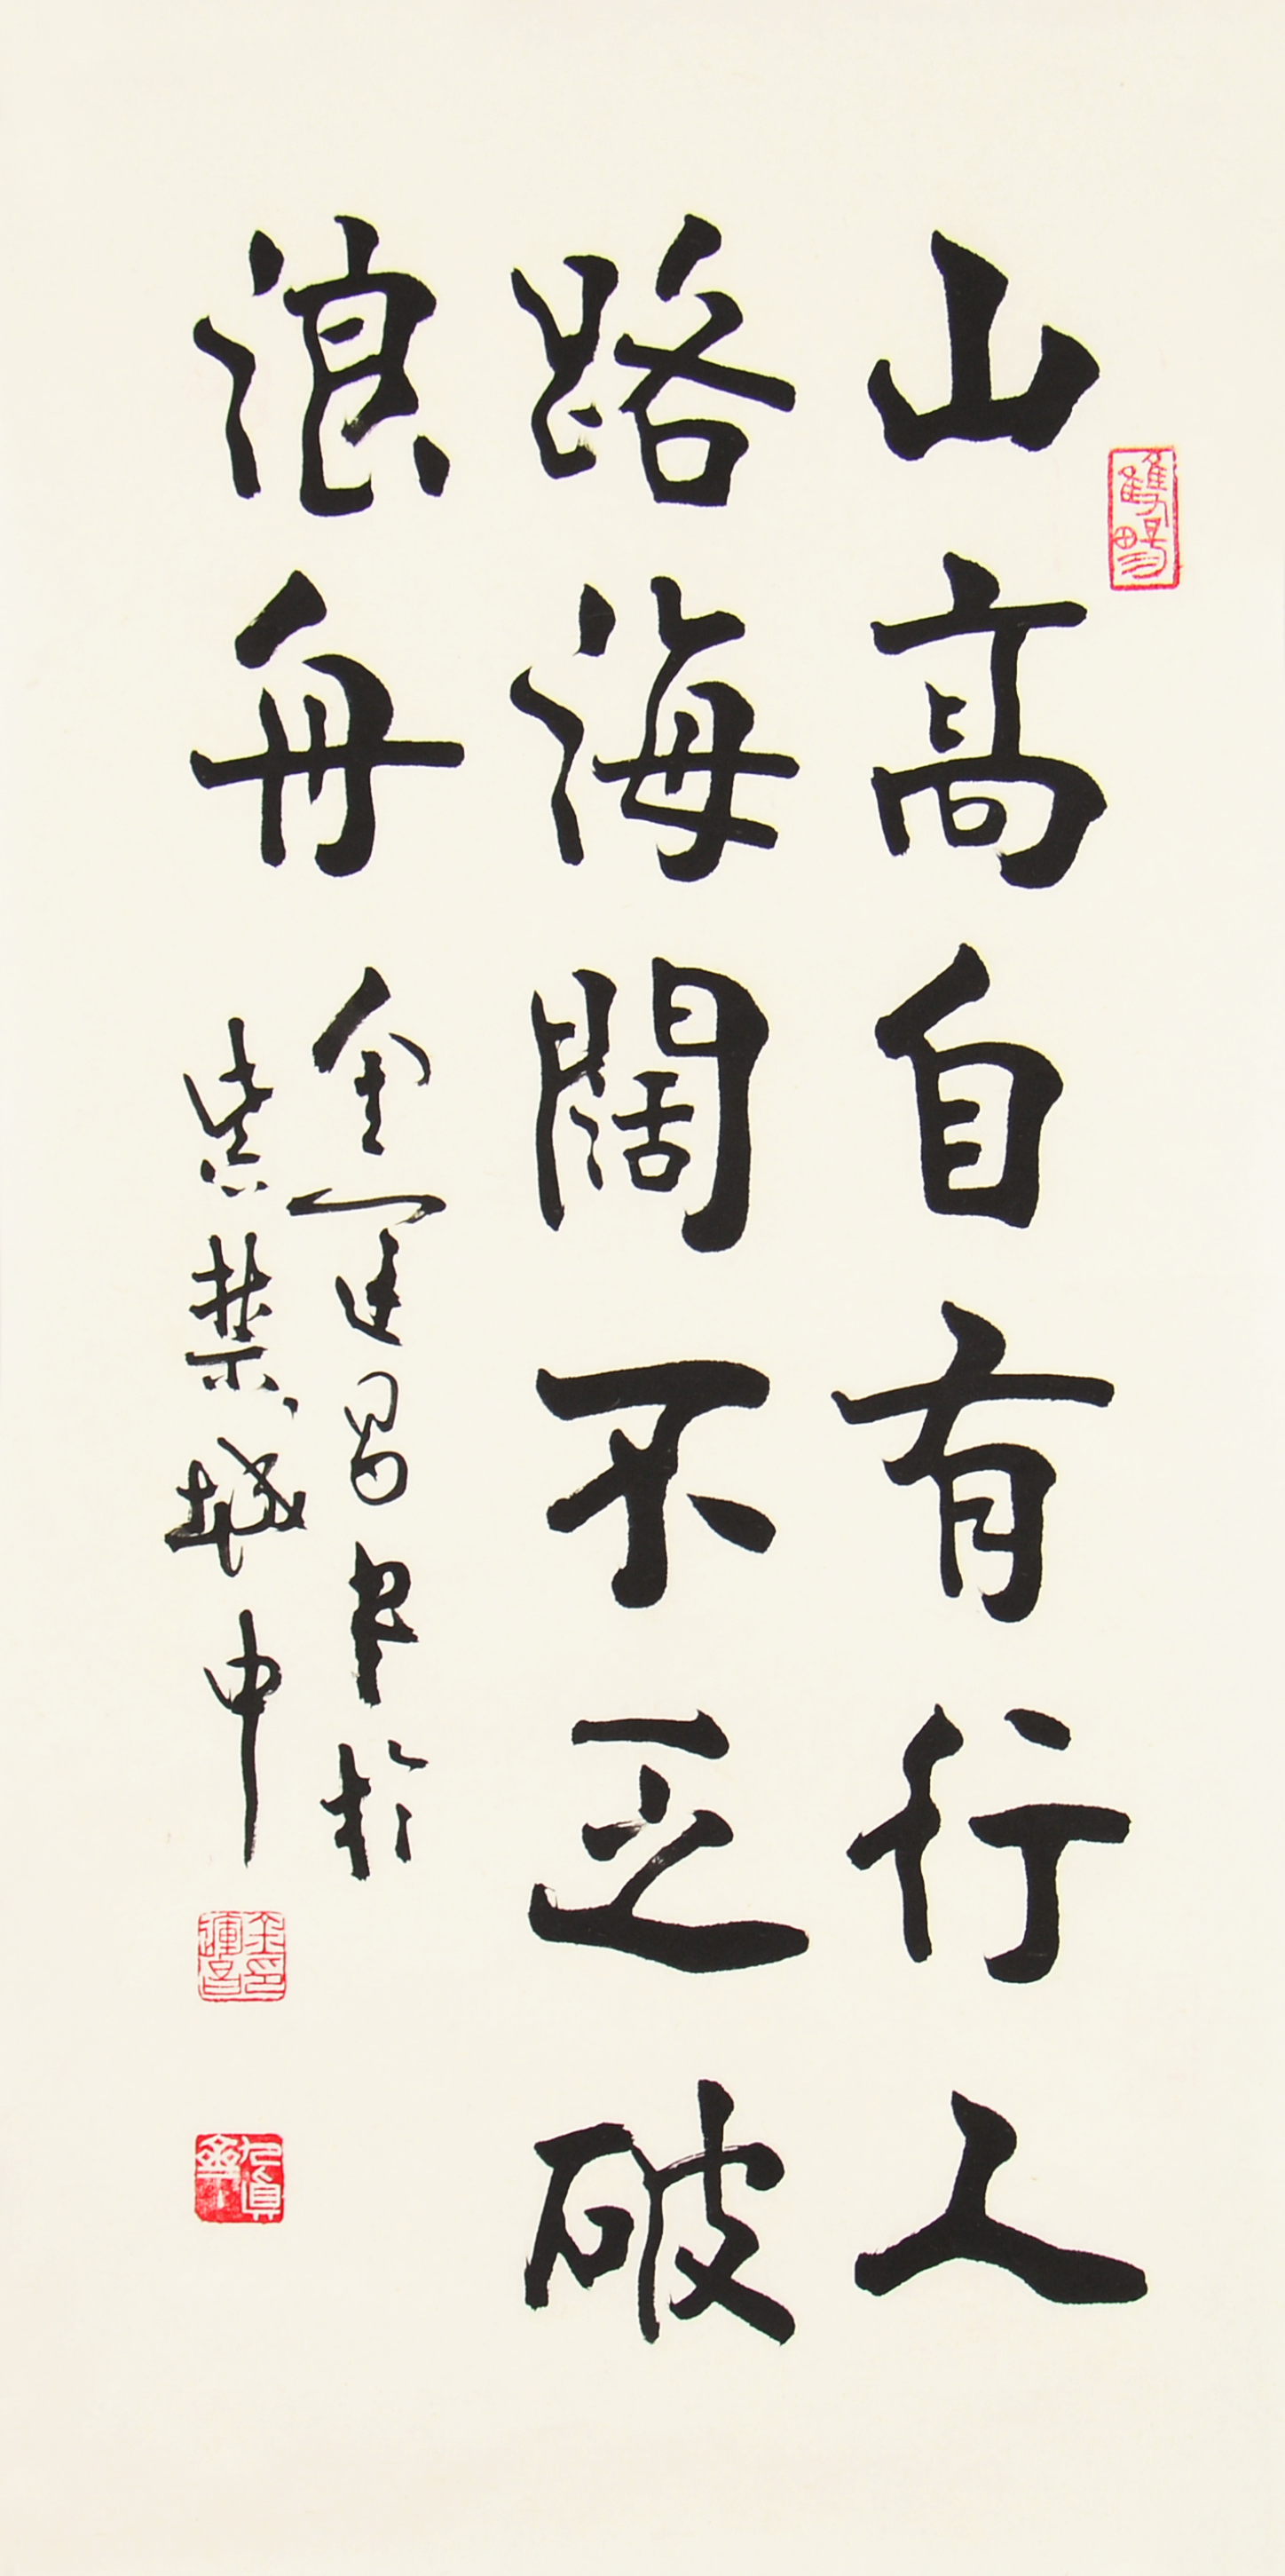 山高自有行人
路海闊不乏破
浪舟
金運昌書於
紫禁城中
金運昌印